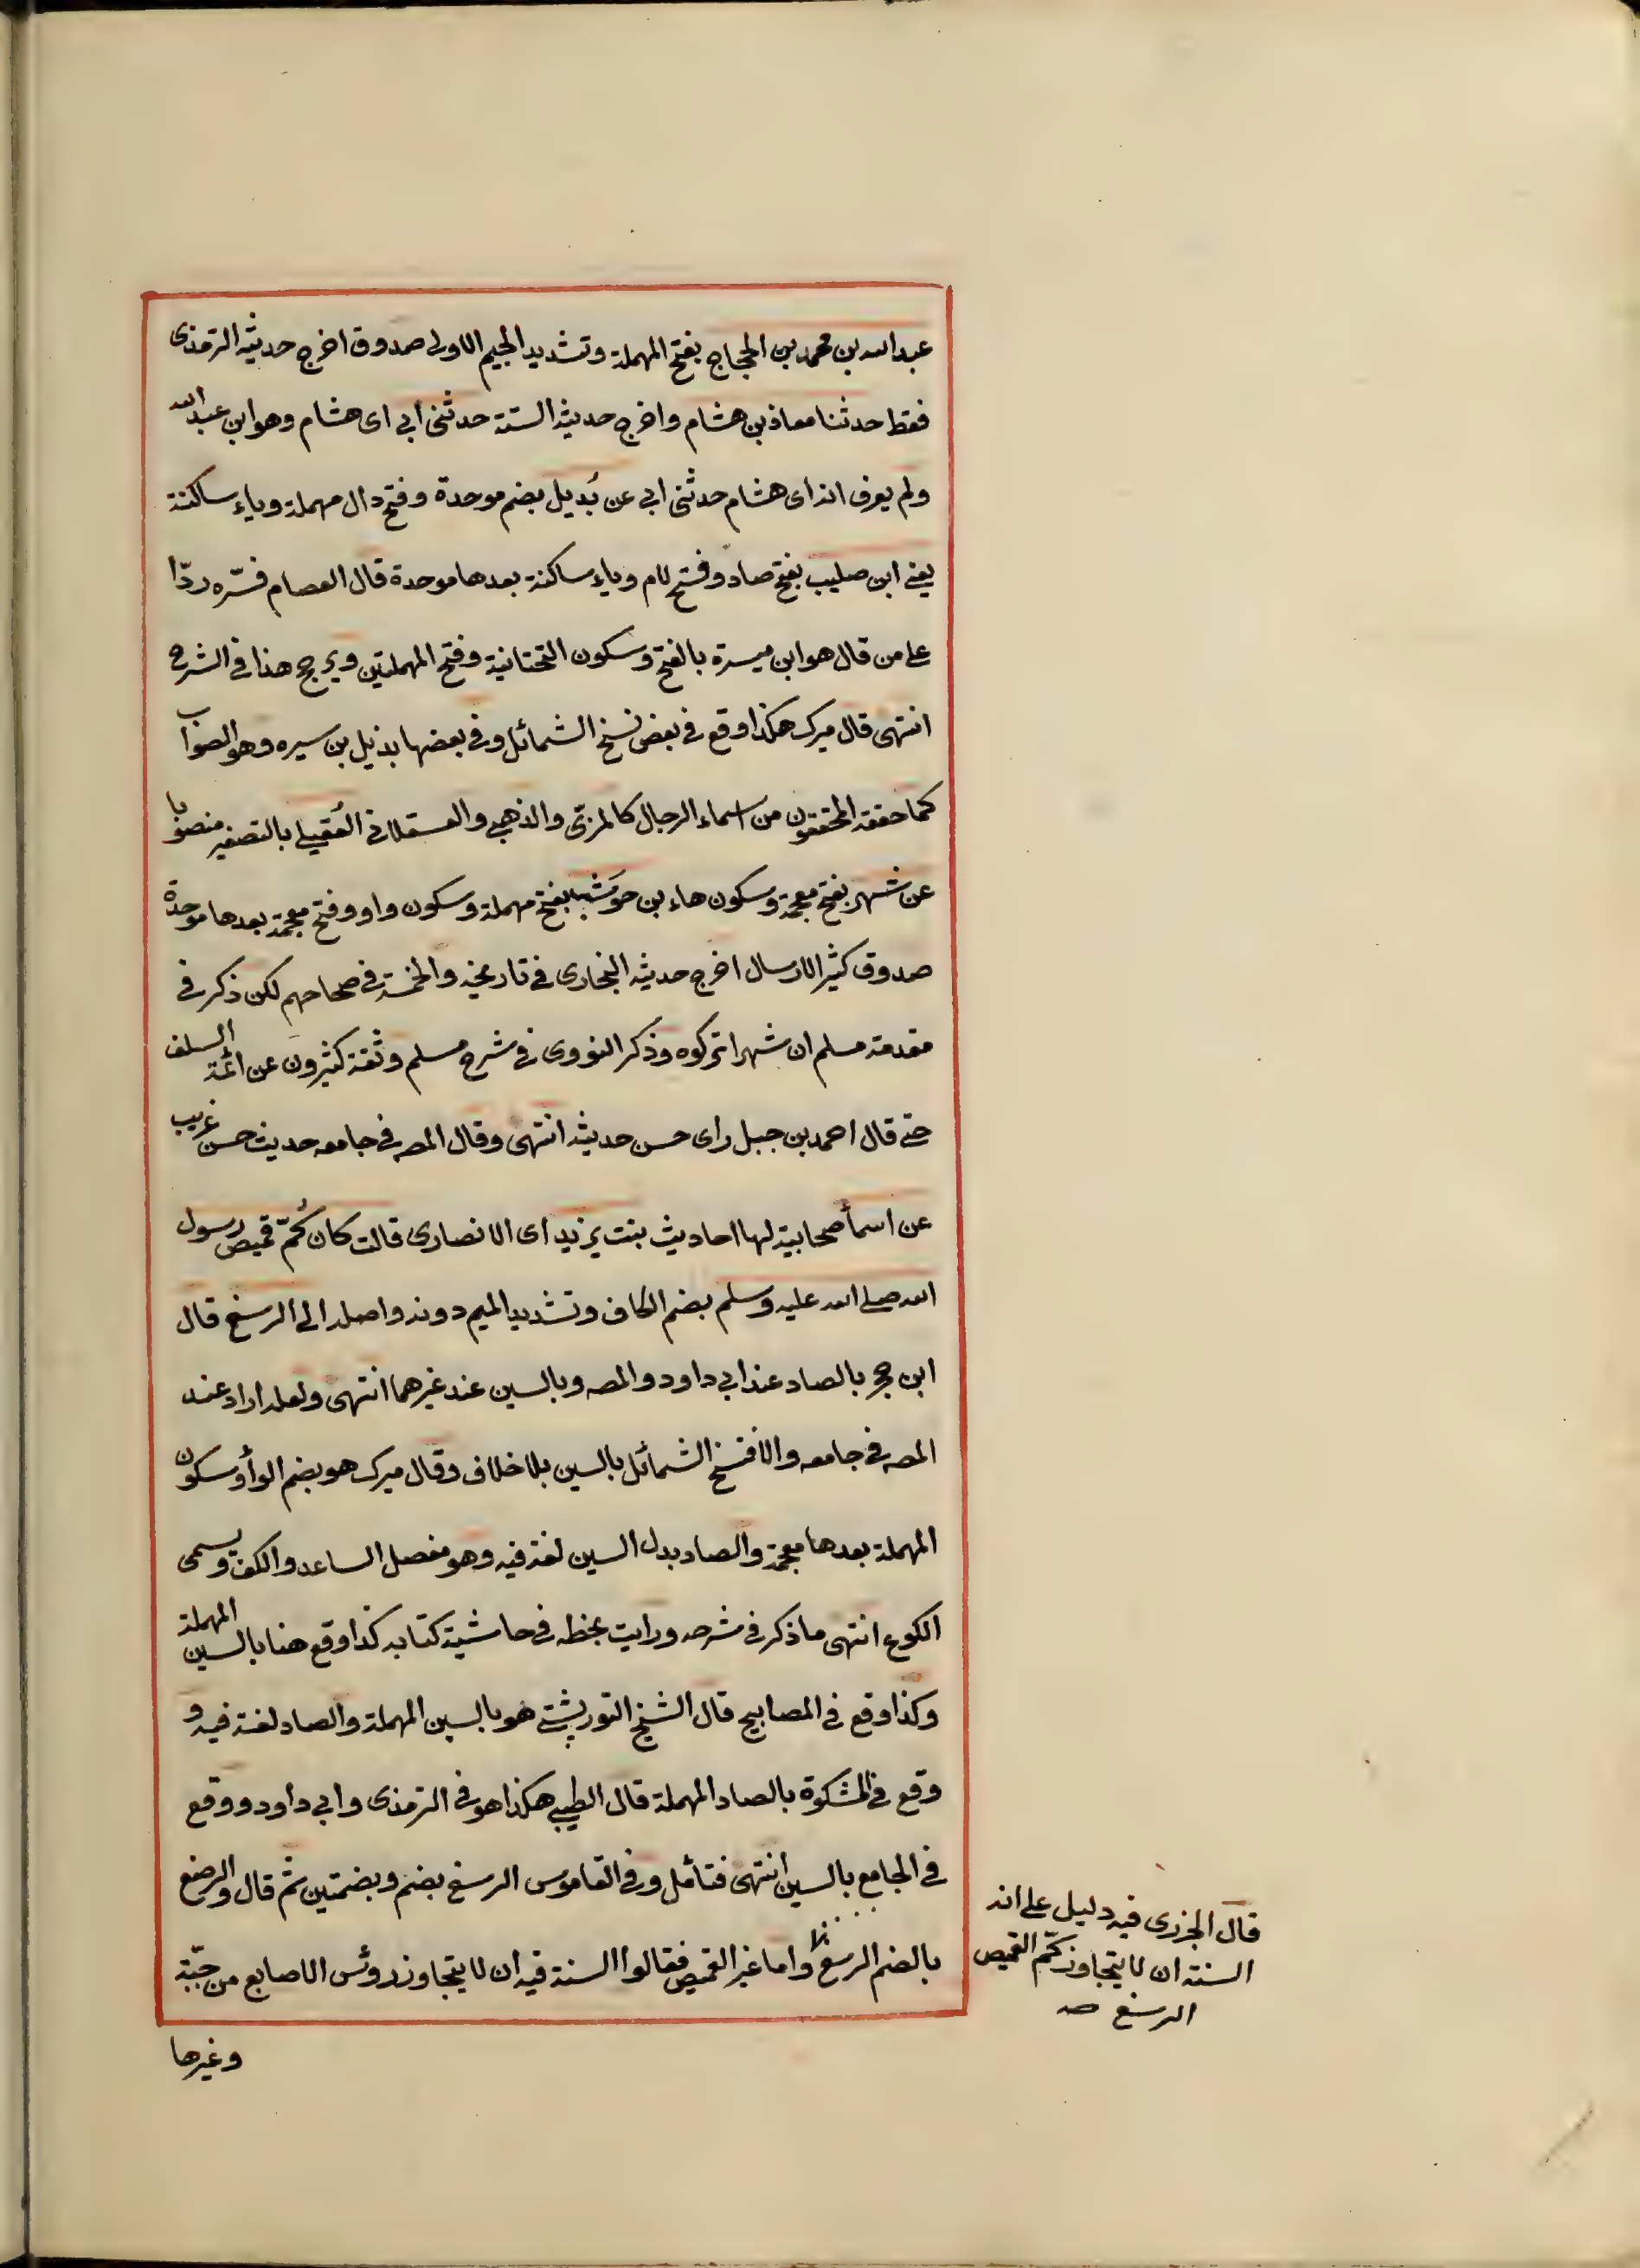 عبد الله بن محمد بن الحجاج بفتح المهملة وتشديد الجيم الاولى صدوق اخرج حديثه الترمذى
فقط حدثنا معاذ بن هشام واخرج حديثه الستة حدثنى ابى اى هشام وهو ابن عبد الله
ولم يعرف انه اى هشام حدثنى ابى عن بُديل بضم موحدة وفتح دال مهملة وياء ساكنة
يعنى ابن صليب بفتح صاد وفتح لام وياء ساكنة بعدها موحدة قال العصام فسّره ردّا
على من قال هو ابن ميسرة بالفتح وسكون التحتانية وفتح المهملتين ويرجح هذا فى الشرح
انتهى قال ميرك هكذا وقع فى بعض نسخ الشمائل وفى بعضها بذيل بن سيره وهو الصواب
كما حققه المحققون من اسماء الرجال كالمزّى والذهبى والعسقلانى العُقيلى بالتصغير منصوبا
عن شهر بفتح معجمة وسكون هاء بن حوَشب بفتح مهملة وسكون واو وفتح معجمة بعدها موحدة
صدوق كثير الارسال اخرج حديثه البخارى فى تاريخه والخمسة فى صحاحهم لكن ذكر فى
مقدمة مسلم ان شهرا تركوه وذكر النووى فى شرح مسلم وثقه كثيرون عن ائمة السلف
حتى قال احمد بن جبل راى حسن حديثه انتهى وقال المصه فى جامعه حديث حسن غريب
عن اسماء صحابية لها احاديث بنت يزيد اى الانصارى قالت كان كُمّ قميص رسول
الله صلى الله عليه وسلم بضم الكاف وتشديد الميم دونه واصله الى الرسغ قال
ابن حجر بالصاد عند ابى داود والمصه وبالسين عند غيرهما انتهى ولعله اراد عند
المصه فى جامعه والا فنسخ الشمائل بالسين بلا خلاف وقال ميرك هو بضم الواو سكون
المهملة بعدها معجمة والصاد بدل السين لغة فيه وهو مفصل الساعد والكف ويسمى
الكوع انتهى ما ذكر فى شرحه ورايت بخطه فى حاشية كتابه كذا وقع هنا بالسين المهملة
وكذا وقع فى المصابيح قال الشيخ التوربشتى هو بالسين المهملة والصاد لغة فيه و
وقع فى المشكوة بالصاد المهملة قال الطيبى هكذا هو فى الترمذى وابى داود ووقع
فى الجامع بالسين انتهى فتامّل وفى القاموس الرسغ بضم وبضمتين ثم قال والرصغ
بالضم الرسغ واما غير القميص فقالوا السنة فيه ان لا يتجاوز رؤس الاصابع من جبّة
وغيرها
قال الجزرى فيه دليل على ان
السنة ان لا يتجاوز كمّ القميص
الرسغ صه